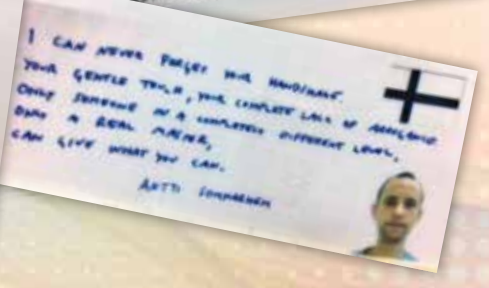 I CAN NEVER FORGET YOUR HANDSHAKE.
YOUR GENTLE TOUCH, YOUR COMPLETE LACK OF ARROGANCE.
ONLY SOMEONE IN A COMPLETELY DIFFERENT LEVEL,
ONLY A REAL MASTER,
CAN GIVE WHAT YOU CAN.
ANTTI